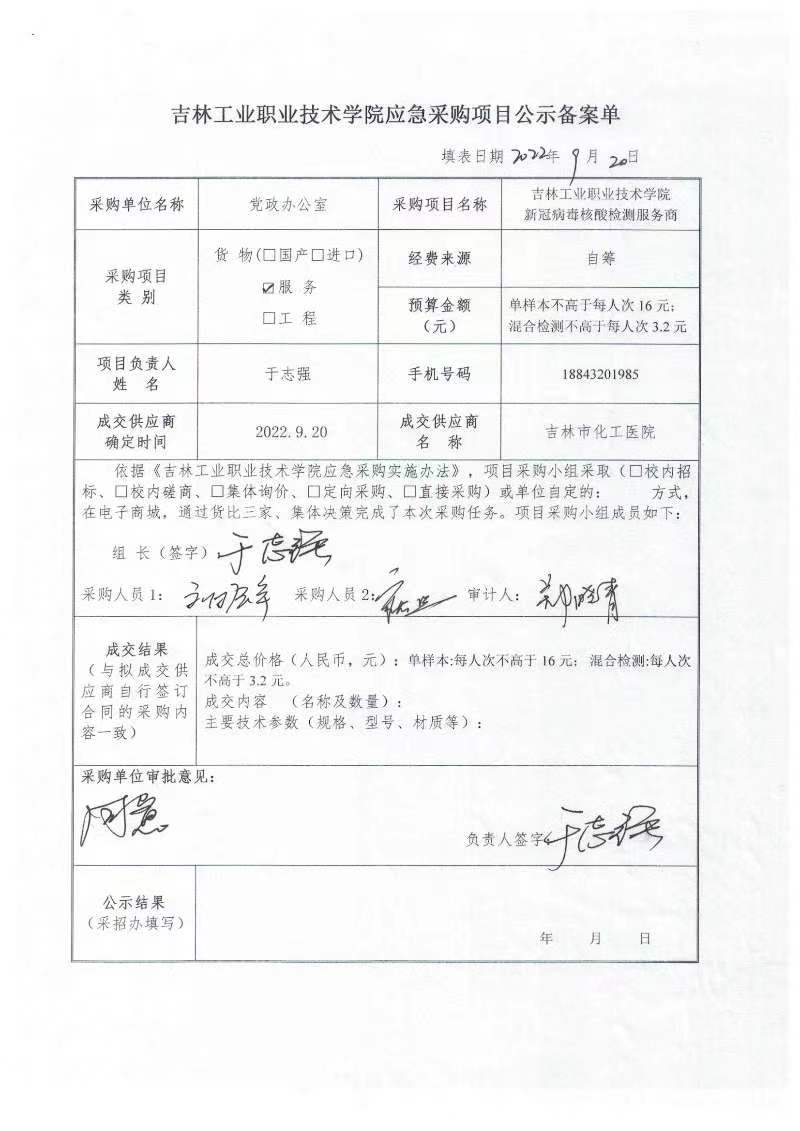 吉林工业职业技术学院应急采购项目公示备案单
填表日期 2022年 9月 20日
采购单位名称 党政办公室 采购项目名称 吉林工业职业技术学院
新冠病毒核酸检测服务商
采购项目
类 别
货 物(□国产□进口)
☑服 务
□工 程
经费来源 自筹
预算金额
(元)
单样本不高于每人次 16 元;
混合检测不高于每人次 3.2 元
项目负责人
姓 名
于志强 手机号码 18843201985
成交供应商
确定时间
2022.9.20 成交供应商
名 称
吉林市化工医院
依据《吉林工业职业技术学院应急采购实施办法》,项目采购小组采取(□校内招
标、□校内磋商、□集体询价、□定向采购、□直接采购)或单位自定的: 方式,
在电子商城,通过货比三家、集体决策完成了本次采购任务。项目采购小组成员如下:
组 长(签字) 于志强
采购人员 1: 采购人员 2: 审计人:
成交结果
(与拟成交供
应商自行签订
合同的采购内
容一致)
成交总价格(人民币,元):单样本:每人次不高于 16 元; 混合检测:每人次
不高于 3.2 元。
成交内容 (名称及数量):
主要技术参数(规格、型号、材质等):
采购单位审批意见:
同意
负责人签字: 于志强
公示结果
(采招办填写)
年 月 日